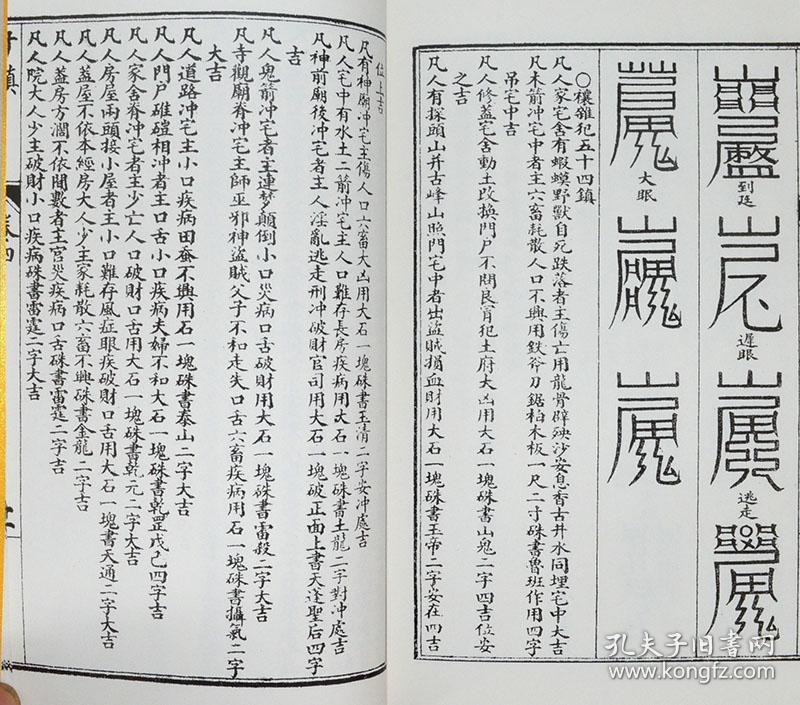 到廷
遲眼
逃走
大眼
〇禳雜犯五十四鎮
凡人家宅舍有蝦蟆野獸自死跌落者主傷亡用龍骨辟殃沙安息香古井水同埋宅中大吉
凡木箭冲宅中者主六畜耗散人口不興用鉄斧刀鋸柏木板一尺二寸硃書魯班作用四字
吊宅中吉
凡人修蓋宅舍動土改換門户不問良宵犯土府大凶用大石一塊硃書山鬼二字四吉位安
之吉
凡人有探頭山并古峰山照門宅中者出盗賊損血財用大石一塊硃書玉帝二字安在四吉
位上吉
凡有神廟冲宅主傷人口六畜大凶用大石一塊硃書玉清二字安冲處吉
凡人宅中有水土二箭冲宅主人口難存長房疾病用大石一塊硃書土龍二字對冲處吉
凡神前廟後冲宅者主人淫亂逃走刑冲破財官司用大石一塊破正面上書天蓬聖后四字
吉
凡人鬼箭冲宅者主連梦顛倒小口災病口舌破財用大石一塊硃書雷殺二字大吉
凡寺觀廟脊冲宅主師巫邪神盗賊父子不和走失口舌六畜疾病用石一塊硃書攝氣二字
大吉
凡人道路冲宅主小口疾病田蚕不興用石一塊硃書泰山二字大吉
凡人門户碓磑相冲者主口舌小口疾病夫婦不和大石一塊硃書乾罡戊己四字吉
凡人家舍脊冲宅者主少亡人口破財口舌用大石一塊硃書乾元二字大吉
凡人房屋兩頭接小屋者主小口難存風症眼疾破財口舌用大石一塊書天通二字大吉
凡人蓋屋不依本經房大人少主家耗散六畜不興硃書金龍二字吉
凡人蓋房方濶不依間數者主官災疾病口舌硃書雷霆二字吉
凡人院大人少主破財小口疾病硃書雷霆二字大吉
卷四
孔夫子旧書网
www.kongfz.com